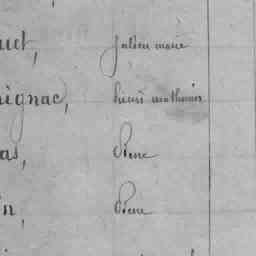 aut, Julien marie
ignac, henri mathurin
as, Pierre
n, Pierre